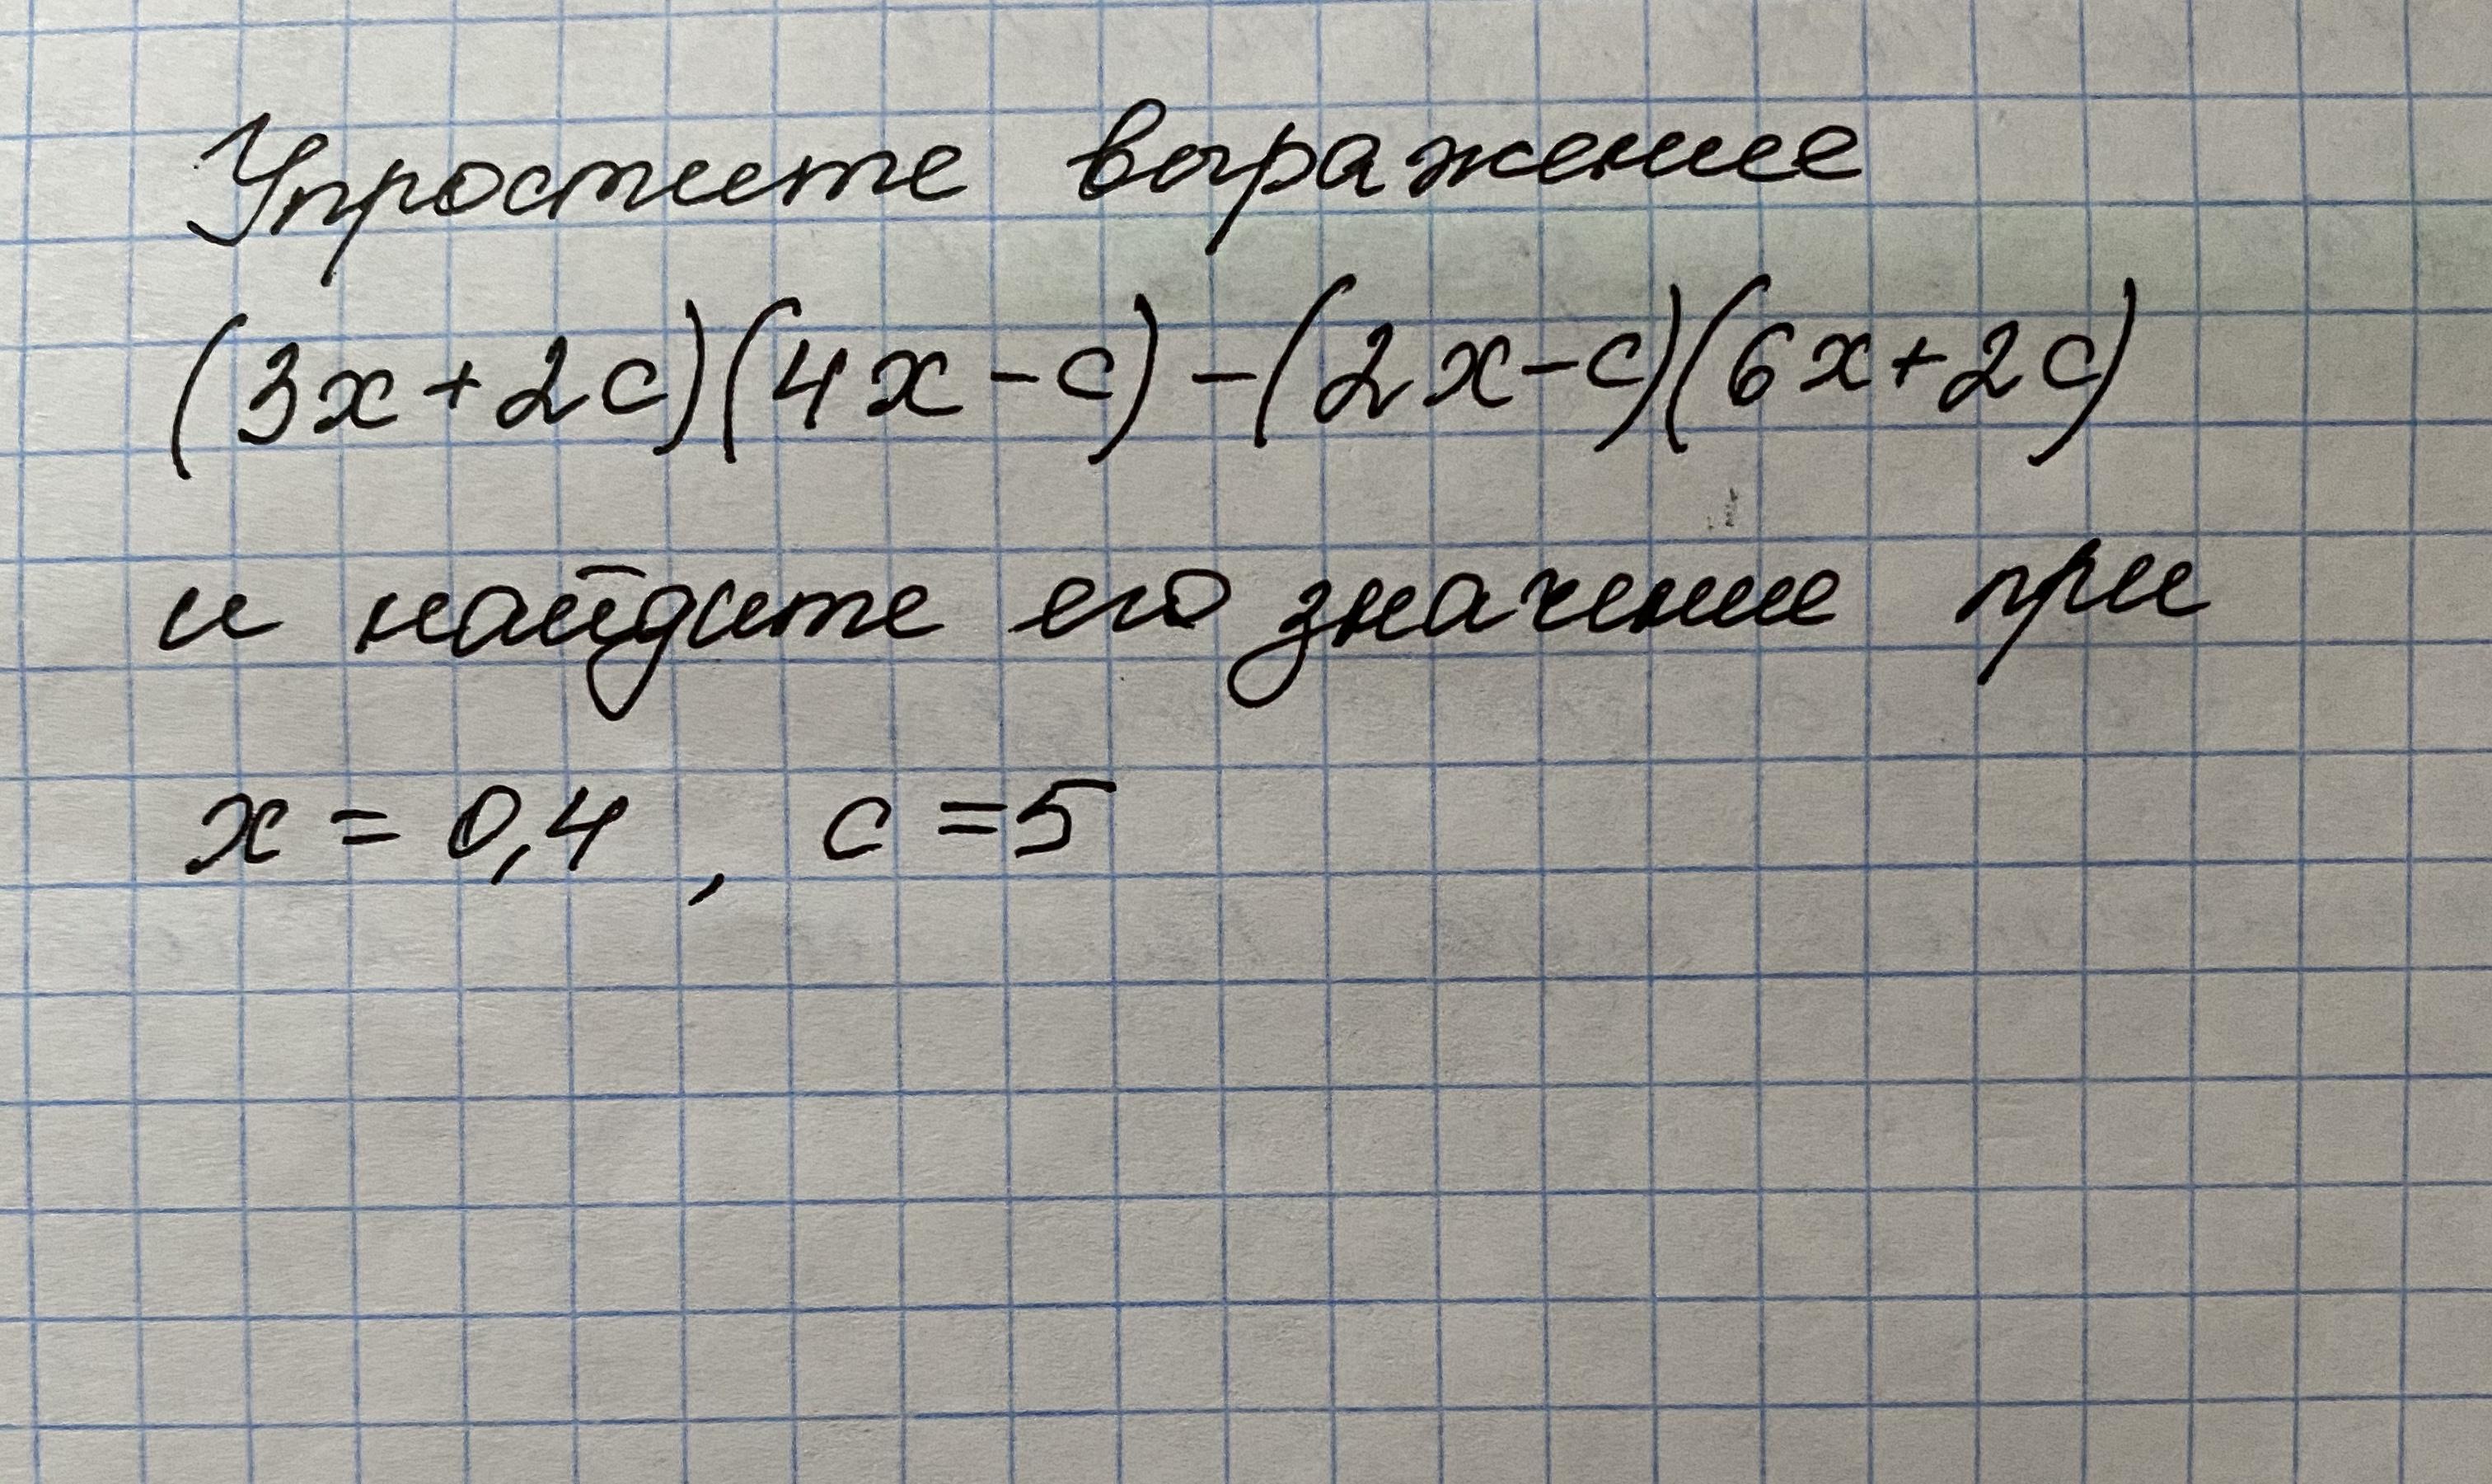 Упростите выражение
(3x+2c)(4x-c)-(2x-c)(6x+2c)
и найдите его значение при
x = 0,4 , c =5